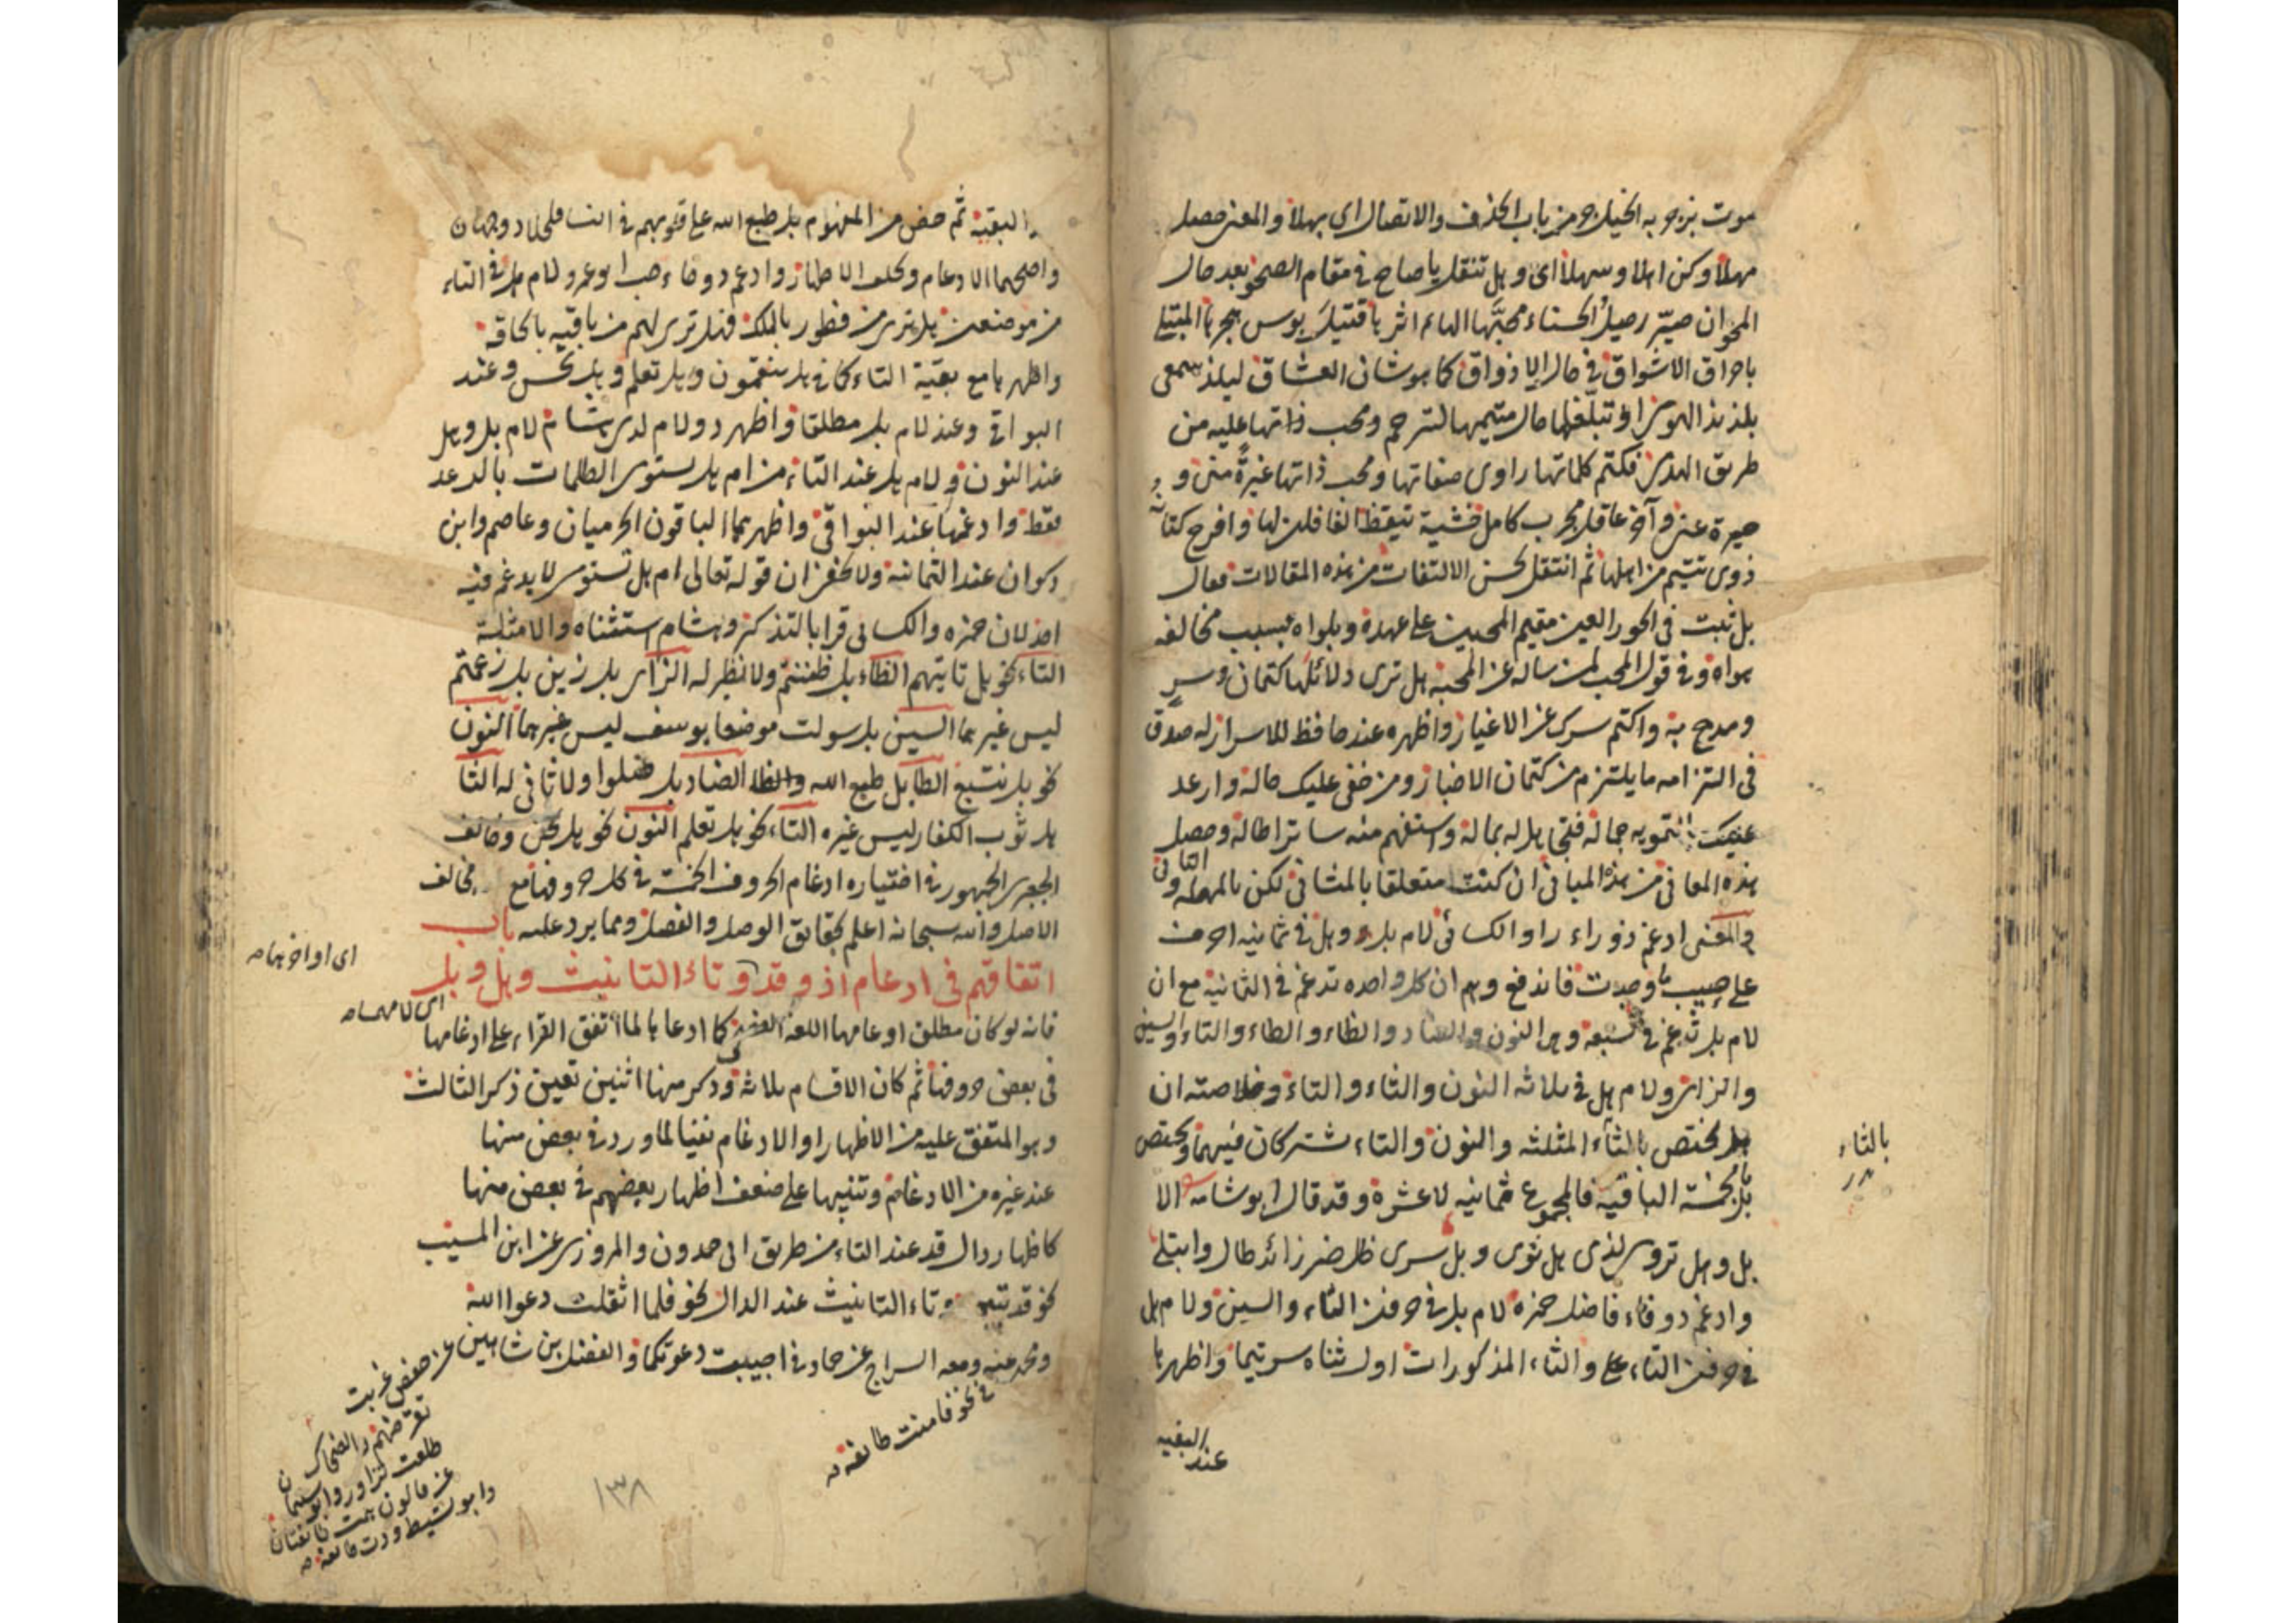 موت بزجو به الخيل جو من باب الحذف والاتصال اي بهلا والمعنى حصل
مهلا وكن اهلا وسهلا اى وهل تنقل يا صاح في مقام الصحو بعد حال
المحو ان صير رحيل الحسناء محبها الهائم اثر
باحراق الاشواق في حال الاذواق كما هو شان العشاق ليلذ سمعى
بلذيذ الهوى او تبلغها حال متيمها لترحم ومحب ذاتها عليه من
طريق الهدى فكتم كلماتها راوى صفاتها ومحب ذاتها غيرة منى و
حيرة عنى وآخر عاقل مجرب كامل خشية تيقظ الغافلين لها وافرح كتمانه
ذوى تتيم من اهلها ثم انتقل بحسن الالتفات من هذه المقالات فقال
بل ثبت فى الحور العين مقيم المحبين على عهده وبلواه بسبب مخالفة
هواه وفى قول المحب لمن ساله عن المحبة هل ترى دلائلها كتمان وسر
ومدح به واكتم سرك عن الاغيار واظهره عند حافظ للاسرار له صدق
فى التزامه ما يلتزم من كتمان الاخبار ومن خفى عليك حاله وارعد
عنيك التمويه جماله فتجاهل له بماله واستفهم منه ساترا طاله وحصل
هذه المعانى من هذه المبانى ان كنت متعلقا بالمثانى لكن بالمهملة والثانى
والمعنى ادغم ذو راء راو الكسائى لام بل وهل فى ثمانيه احرف
على حسب ما وجدت فاندفع وهم ان كل واحده تدغم فى الثمانية مع ان
لام بل تدغم فى سبعة وهى النون والضاد والظاء والطاء والتاء والسين
والزاى ولام هل فى ثلاثه النون والثاء والتاء وخلاصته ان
هل مختص بالثاء المثلثه والنون والتاء مشتركان فيهما ويختص
بل بالخمسة الباقية فالمجموع ثمانيه لا عشرة وقد قال ابو شامة الا
بل وهل تروى لذى هل ثوى وبل سرى ظل ضر زائد طال وابتلى
وادغم ذو فاء فاضل حمزه لام بل فى حرفى التاء والسين ولام هل
فى حرفى التاء والثاء المذكورات اول ثناه سر تيما واظهرها
عند البقيه
بالثاء
البقية ثم خص من المفهوم بل طبع الله على قلوبهم فى النسا فلخلاد وجهان
واصحهما الادغام ولخلف الاظهار وادغم ذو حاء حب ابو عمرو لام هل فى التاء
من موضعين هل ترى من فطور بالملك فهل ترى لهم من باقيه بالحاقة
واظهرها مع بقية التاء كما فى هل تنقمون وهل تعلم وهل تحس وعند
البواقى وعند لام بل مطلقا واظهر ذو لام لدى هشام لام بل وهل
عند النون ولام هل عند التاء من ام هل تستوى الظلمات بالرعد
فقط وادغمها عند البواقى واظهرهما الباقون الحرميان وعاصم وابن
ذكوان عند الثمانية ولا يخفى ان قوله تعالى ام هل تستوى لا يدغم فيه
احد لان حمزه والكسائى قرا بالتذكير وهشام استثناه والامثلة
التاء نحو بل تاتيهم الظاء بل ظننتم ولا نظير له الزاى بل زين بل زعمتم
ليس غيرهما السين بل سولت موضعا يوسف ليس غيرهما النون
نحو بل نتبع الطا بل طبع الله والظا الضاد بل ضلوا ولا ثانى له الثا
هل ثوب الكفار ليس غيره التاء نحو هل تعلم النون نحو هل نحن وخالف
الجعبرى الجمهور فى اختياره ادغام الحروف الخمسة فى كل حروفها مع مخالف
الاصل والله سبحانه اعلم بحقائق الوصل والفصل ومما يرد عليه باب
اتفاقهم فى ادغام اذ وقد وتاء التانيث وهل وبل
فانه لو كان مطلق ادغامها اللغة كما ادعاها لما اتفق القراء على ادغامها
فى بعض حروفها ثم كان الاقسام ثلاثه وذكر منها اثنين تعين ذكر الثالث
وهو المتفق عليه من الاظهار او الادغام نفيا لما ورد فى بعض منها
عند غيره من الادغام وتنبيها على ضعف اظهار بعضهم فى بعض منها
كاظهار دال قد عند التاء من طريق ابى حمدون والمروزى عن ابن المسيب
نحو قد تبين وتاء التانيث عند الدال نحو فلما اثقلت دعوا الله
ومحمد عنه ومعه السراج عن حماد فى اجيبت دعوتكما والفضل بن شاهين
عن حفص غربت
تقرضهم والضحاك
طلعت تزاور وابو سليمان
عن قالون همت طائفتان
وابو نشيط ودت طائفة
فى نحو فامنت طائفة
اى اواخرها
اى لامهما
١٣٨